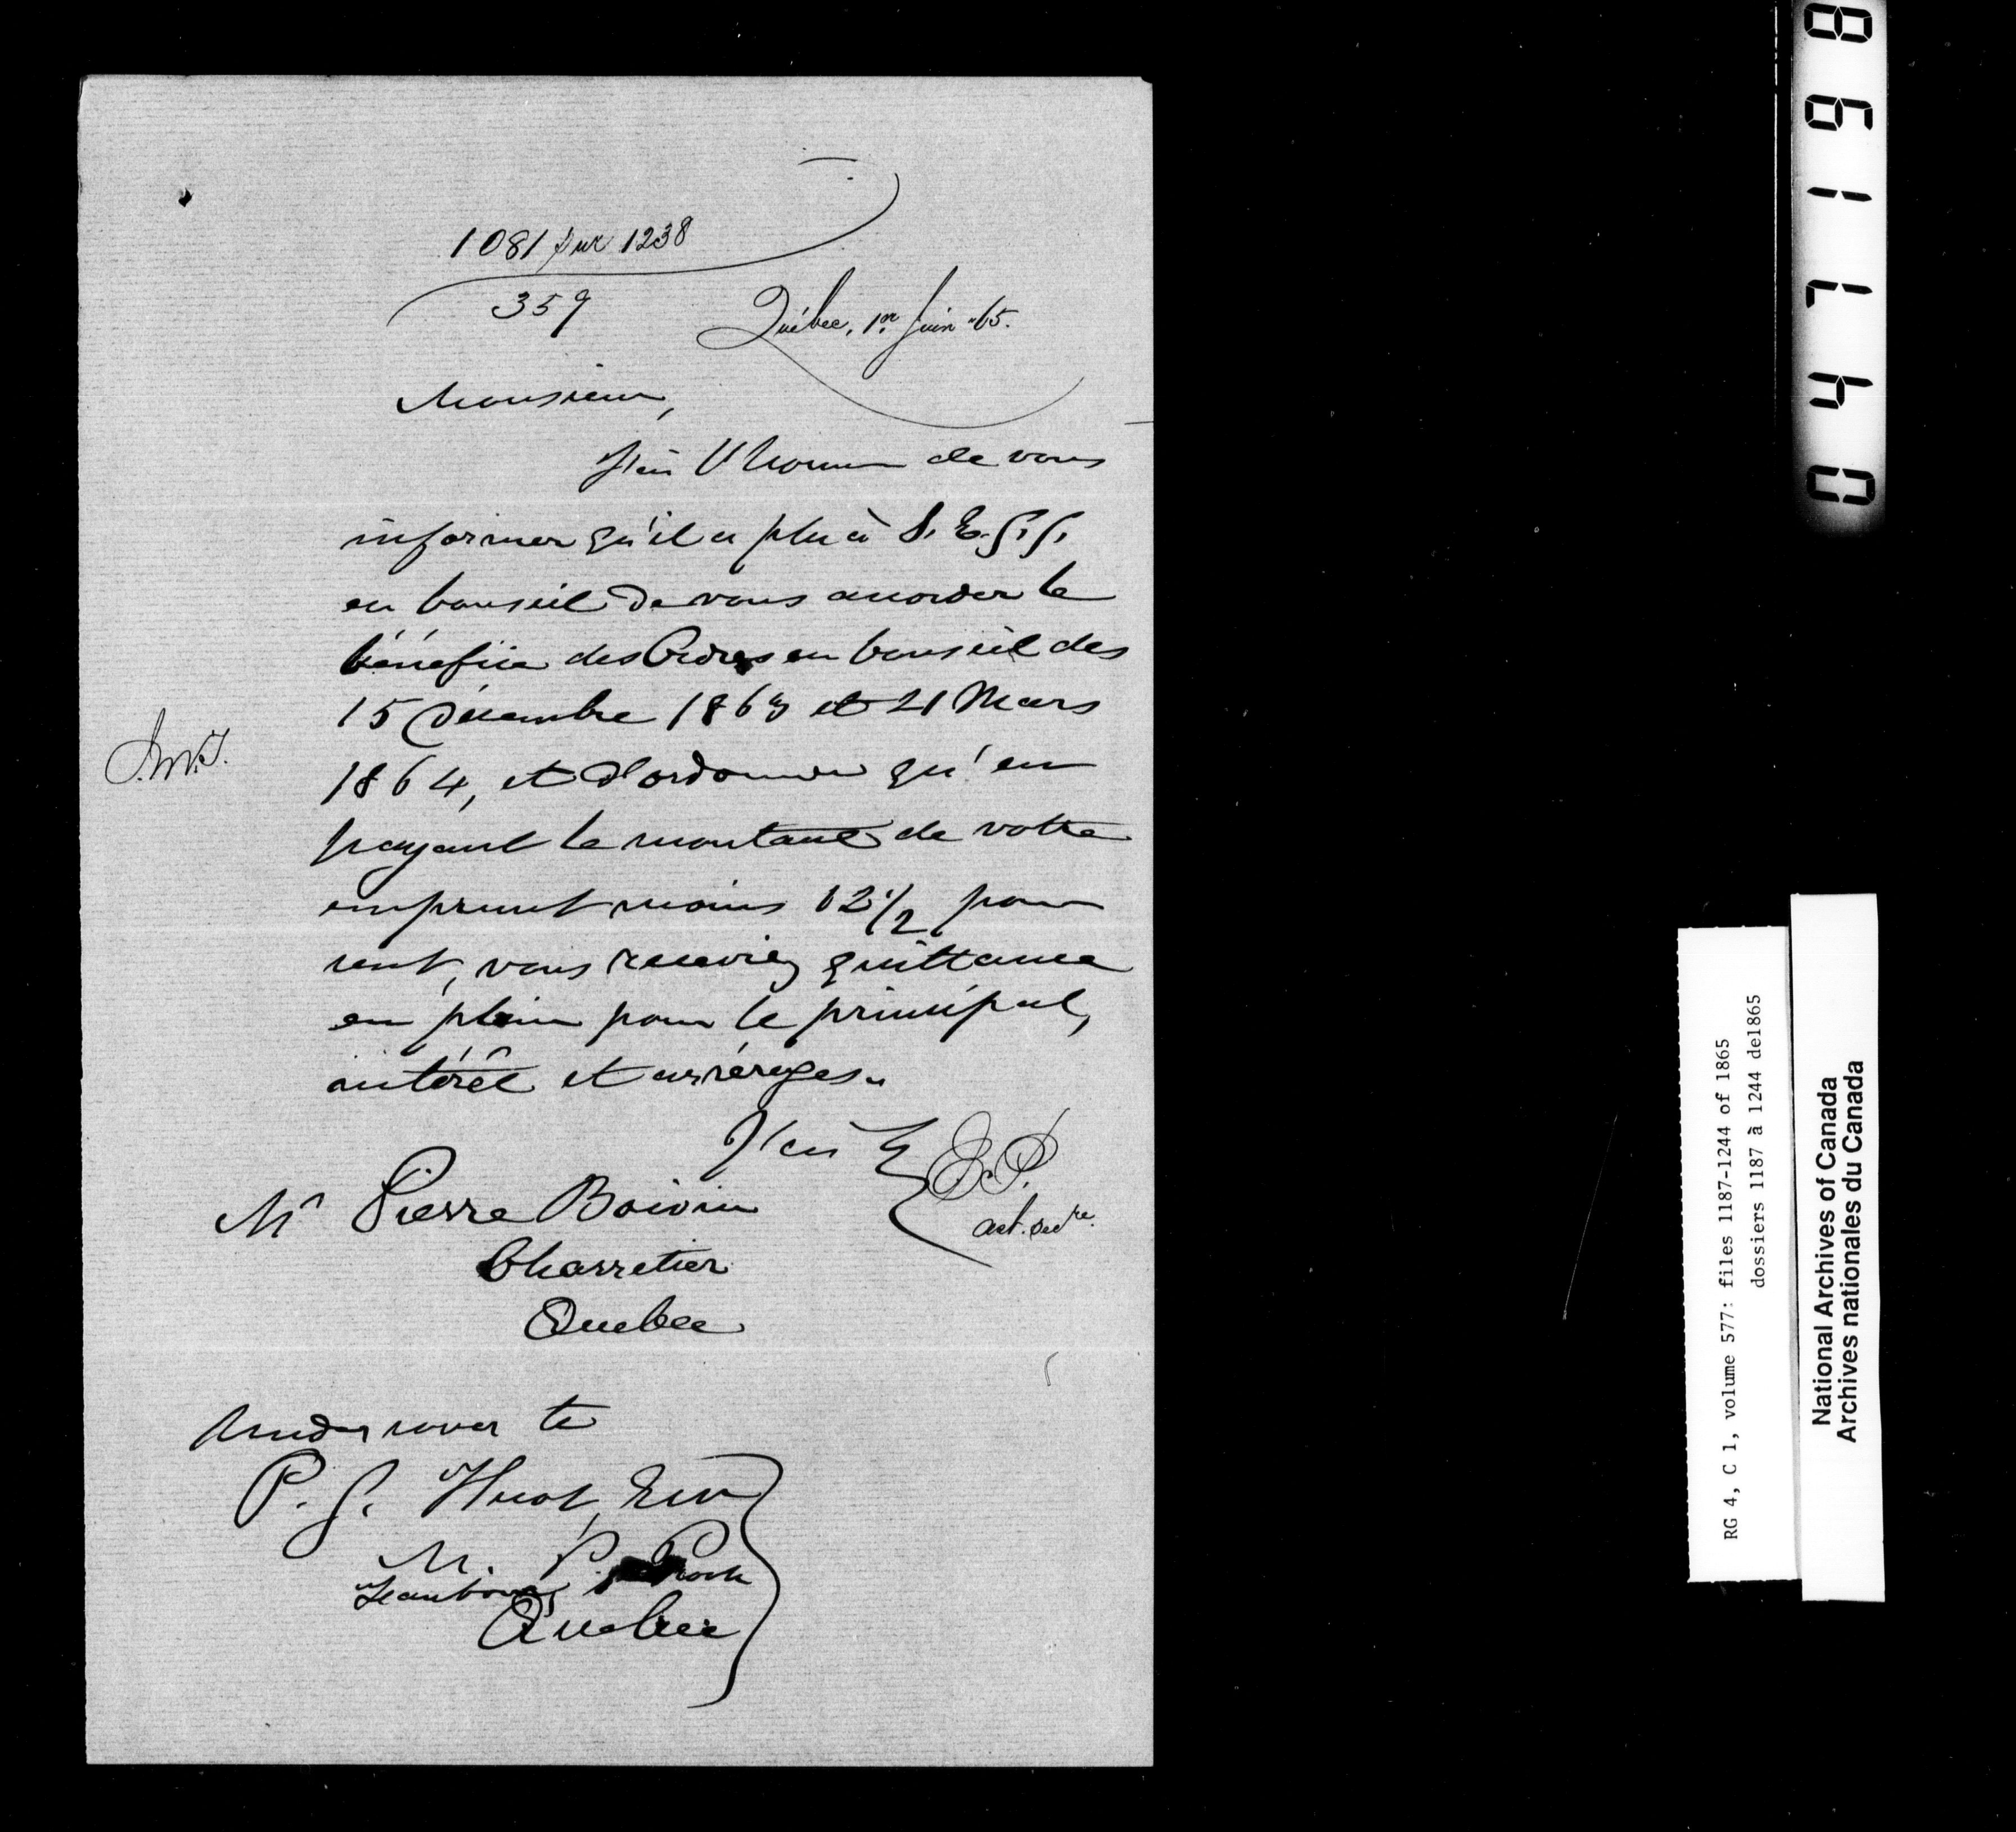 1081 sur 1238
359
Québec, 1er Juin 65.
Monsieur,
J'ai l'honneur de vous
informer qu'il a plu à S. E. G. G.
en Conseil de vous accorder le
bénéfice des Ordres en Conseil des
15 Décembre 1863 et 21 Mars
1864, et d'ordonner qu'en
payant le montant de votre
emprunt moins 12 1/2 pour
cent, vous receviez quittance
en plein pour le principal,
intérêt et arrérages.
J'ai &
E. P.
act. secre.
Mr Pierre Boivin
Charretier
Quebec
Under cover to
P. G. Huot, Esqr
M. P. P.
Quebec
0471698
RG 4, C 1, volume 577: files 1187-1244 of 1865
dossiers 1187 à 1244 de1865
National Archives of Canada
Archives nationales du Canada